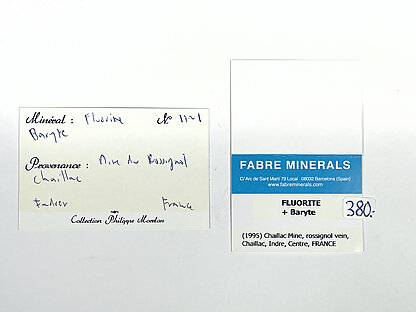 Minéral : Fluorine N° 11~1
Baryte
Provenance : Mine du Rossignol
Chaillac
France
Collection Philippe Morelon
FABRE MINERALS
C/ Arc de Sant Martí 79 Local 08032 Barcelona (Spain)
www.fabreminerals.com
FLUORITE
+ Baryte
380.-
(1995) Chaillac Mine, rossignol vein,
Chaillac, Indre, Centre, FRANCE